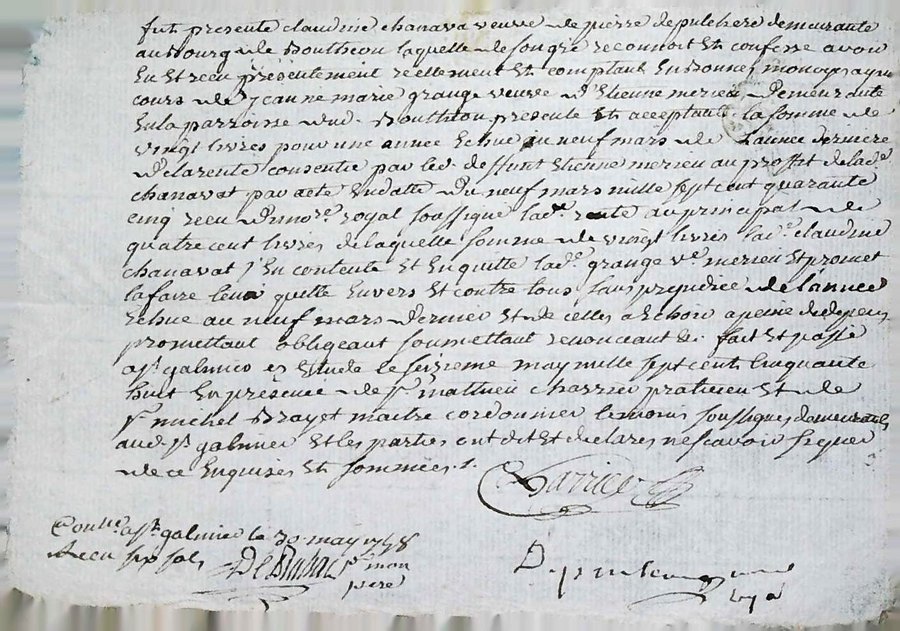 fut presente claudine chanava veuve de pierre depulchere demeurante
au Bourg de Boutheon laquelle de son gre reconnoit et confesse avoir
eu et receu presentement reellement et comptant en bonnes monoyes ayant
cours de jeanne marie grange veuve d'Etienne merieu demeurante
en la parroisse dud. Bouthton presente et acceptante la somme de
vingt livres pour une année echue au neuf mars de l'année derniere
de la rente consentie par led deffunt Etienne merieu au proffit de lad.e
chanavat par acte en datte du neuf mars mille sept cent quarante
cinq receu du no.re royal soussigné lad.e rente au principal de
quatre cent livres de laquelle somme de vingt livres lad.e claudine
chanavat s'en contente et en quitte lad.e grange v.e merieu et promet
la faire tenir quitte envers et contre tous sans prejudice de l'année
echue au neuf mars dernier et de celles a echoir a peine de depens
promettant obligeant soumettant renonceant &c fait et passé
a S.t galmier es etude le seizieme may mille sept cent cinquante
huit en presence de S.r mathieu charrier praticien et de
S.r michel Brayet maitre cordonnier temoins soussignes demeurants
aud. S.t galmier et les parties ont dit et declares ne scavoir signer
de ce enquises et sommées.
Charrier
Con.lle a S.t galmier le 30 may 1758
Receu six sols
p.r mon
pere